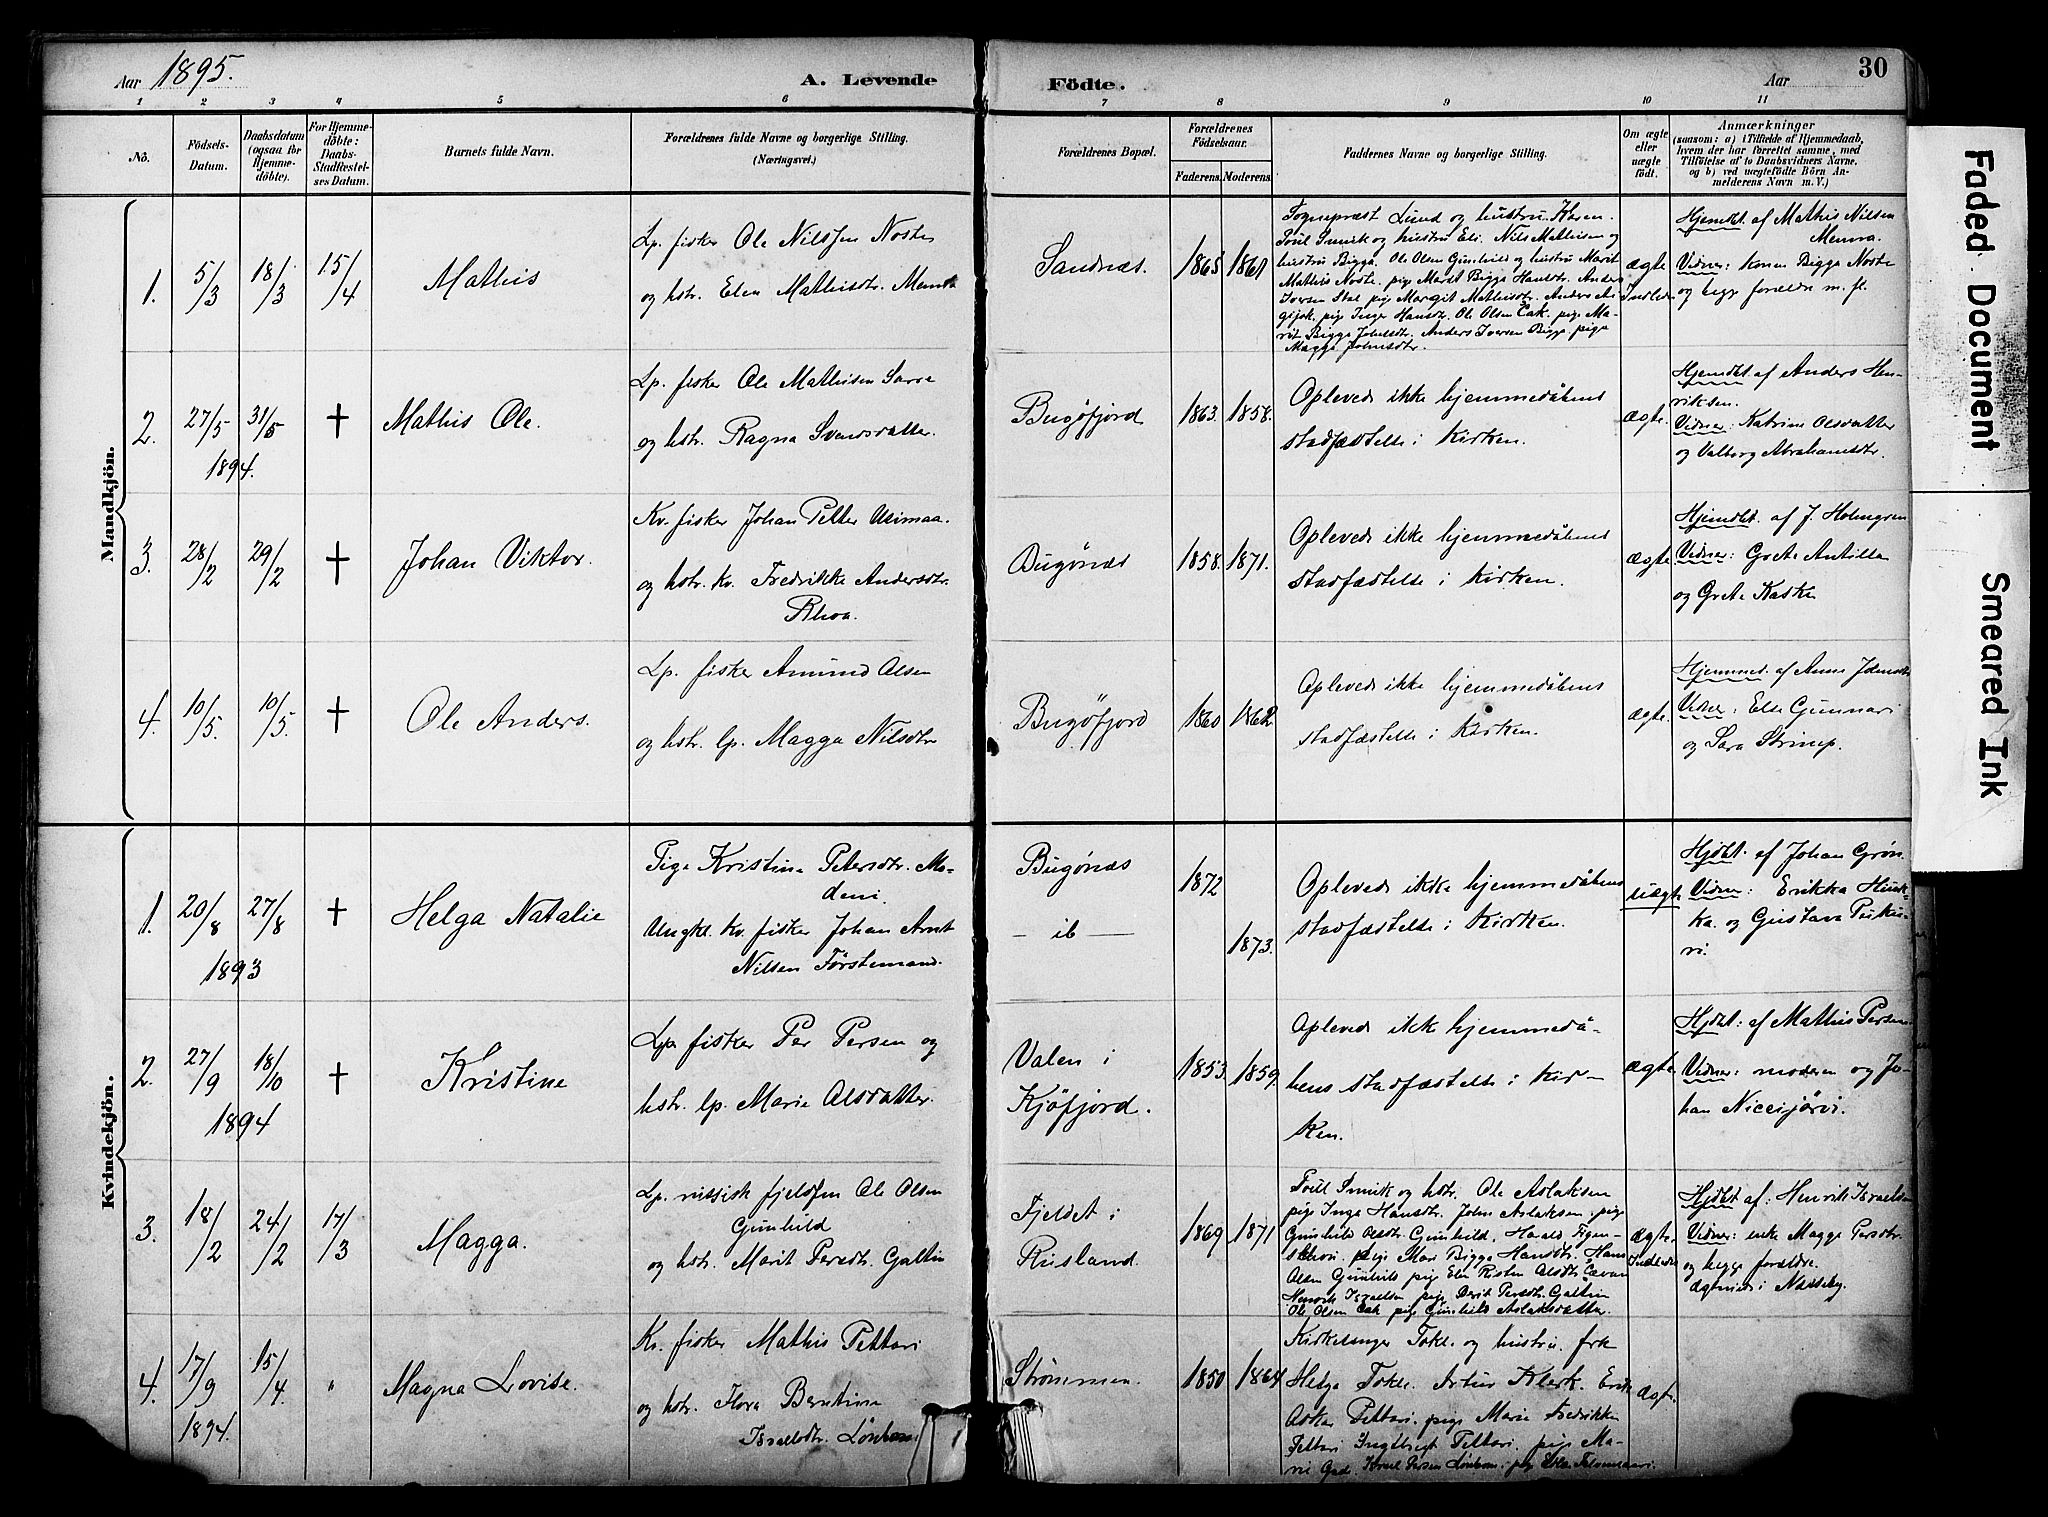 Aar 1895.
A. Levende
Födte.
Aar
30
1 2 3 4 5 6 7 8 9 10 11
No.
Födsels-
Datum.
Daabsdatum
(ogsaa for
Hjemme-
döbte).
For Hjemme-
döbte:
Daabs-
Stadfæstel-
ses Datum.
Barnets fulde Navn.
Forældrenes fulde Navne og borgerlige Stilling.
(Næringsvei.)
Forældrenes Bopæl.
Forældrenes
Födselsaar.
Faderens. Moderens.
Faddernes Navne og borgerlige Stilling.
Om ægte
eller
uægte
födt.
Anmærkninger
(saasom: a) i Tilfælde af Hjemmedaab,
hvem der har forrettet samme, med
Tilföielse af to Daabsvidners Navne.
og b) ved uægtefödte Börn An-
melderens Navn m. V.)
Mandkjön.
1.
5/3
18/3
15/4
Mathis
Lp. fisker Ole Nilssen Noste
og hstr. Elen Mathisdtr. Menna
Sandnæs.
1865
1861
Sognepræst Lund og hustru Karen.
Poul Smuk og hustru Eli. Nils Mathisen og
hustru Bigga. Ole Olsen Gunhild og hustru Marit
Mathis Noste. pig Marit Bigga Hansdtr. Anders
Iversen Stal pig Margit Mathisdtr. Anders Ai
gijok. pig Inger Hansdtr. Ole Olsen Cak. pig Ma-
rit Bigga Johnsdtr. Anders Iversen Bigga. pige
Magga Johnsdtr.
ægte
Hjemdbt af Mathis Nilsen
Menna.
Vidner: Konen Bigga Noste
og begge forældre m. fl.
2.
27/5
1894.
31/5
†
Mathis Ole.
Lp. fisker Ole Mathisen Sarre
og hstr. Ragna Svensdatter.
Bugöfjord
1863.
1858.
Opleved ikke hjemmedåbens
stadfæstelse i kirken.
ægte.
Hjemdbt af Anders Hen-
riksen.
Vidner: Katrine Olsdatter
og Valborg Abrahamsdtr.
3.
28/2
29/2
†
Johan Viktor.
Kv. fisker Johan Petter Usimaa.
og hstr. kv. Fredrikke Andersdtr.
Rhoa.
Bugönæs
1858.
1871.
Opleved ikke hjemmedåbens
stadfæstelse i kirken.
ægte
Hjemdbt. af J. Holmgren
Vidner: Grete Antilla
og Grete Kaske
4.
10/5.
10/5.
†
Ole Anders.
Lp. fisker Amund Olsen
og hstr. lp. Magga Nilsdtr
Bugöfjord
1860
1862
Opleved ikke hjemmedåbens
stadfæstelse i kirken.
ægte.
Hjemmet. af Anne
Vidner: Else Gunnari
og Sara Strimp.
Kvindekjön.
1.
20/8
1893
27/8
†
Helga Natalie
Pige Kristine Petersdtr. Mo-
deni.
Ungkl. kv. fisker Johan Arnt
Nilsen Förstemand.
Bugönæs
— ib —
1872
1873.
Opleved ikke hjemmedåbens
stadfæstelse i kirken.
uægte.
Hjdbt. af Johan Grön.
Vidner: Erikka Hink-
ka. og Gustava Pukku-
ri.
2.
27/9
1894
18/10
†
Kristine
Lp. fisker Per Persen og
hstr. lp. Marie Olsdatter.
Valen i
Kjöfjord.
1853.
1859.
Opleved ikke hjemmedå-
bens stadfæstelse i kir-
ken.
ægte
Hjdbt: af Mathis Persen.
Vidner: moderen og Jo-
han Niccijörvi.
3.
18/2
24/2
17/3
Magga.
Lp. russisk fjeldfin Ole Olsen
Gunhild
og hstr. Marit Persdtr. Galtin
Fjeldet i
Rusland.
1869
1871
Poul Smuk og hstr. Ole Aslaksen
pige Inga Hansdtr. John Aslaksen. pige
Gunhild Olsdtr. Gunhild. Harald Figen-
schou. pige Mari Bigga Hansdtr. Hans
Olsen Gunhild pig Elen Risten Olsdtr. Cævan
Henrik Israelsen pige Berit Persdtr. Galtin
Ole Olsen Cak pig Gunhild Aslaksdatter.
ægte.
Hjdbt af: Henrik Israelsen
Vidner: enke Magga Persdtr.
og begge forældre.
Næsseby.
4.
17/9
1894.
15/4
"
Magna Lovise.
Kv. fisker Mathis Pettari
og hstr. Flora Berntine
Israelsdtr. Lönbom
Strömmen.
1850
1864
Kirkesanger Tokle. og hustru. frk
Helga Tokle. Artur Klerk. Erik
Oskar Pettari. pige Marie Fredrikke
Pettari Ingebrigt Pettari. pige Ma-
rie Gade. Israel Persen Lönbom. pige
ægte.
Faded Document
Smeared Ink